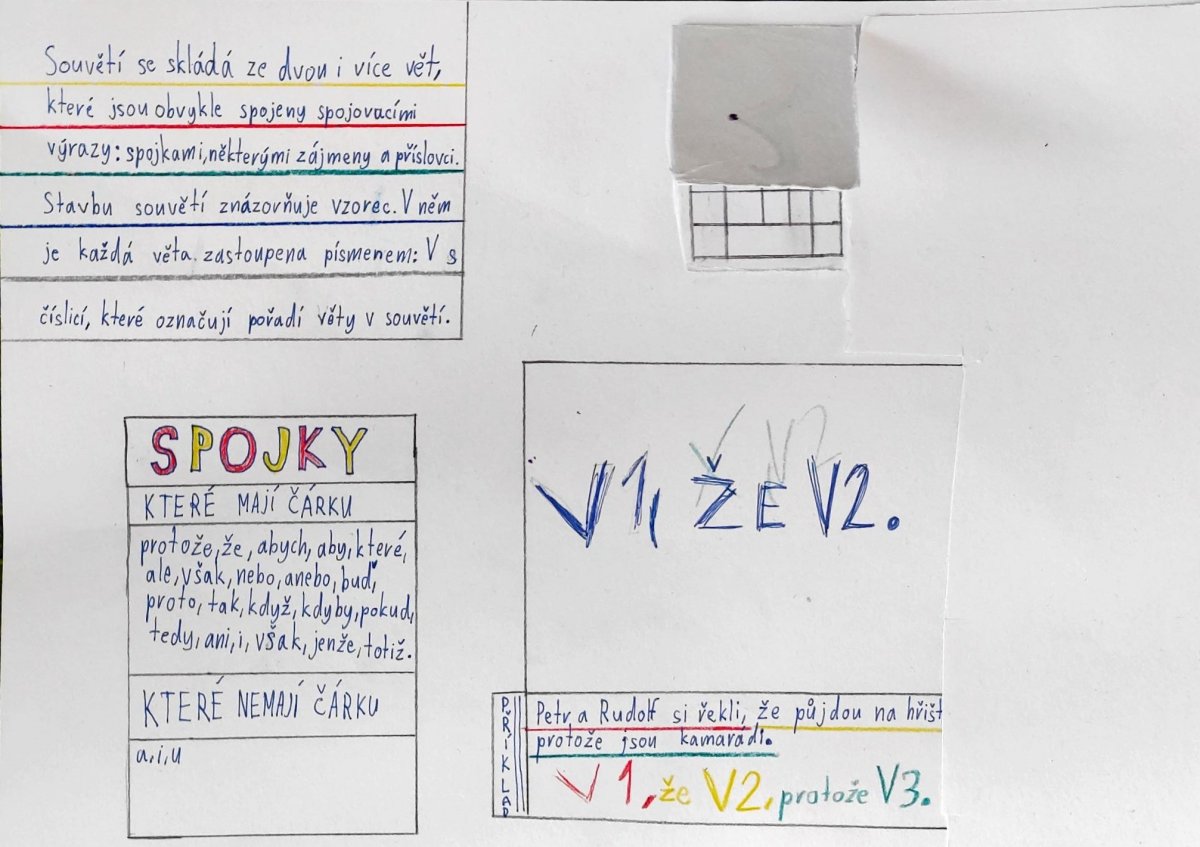 Souvětí se skládá ze dvou i více vět,
které jsou obvykle spojeny spojovacími
výrazy: spojkami, některými zájmeny a příslovci.
Stavbu souvětí znázorňuje vzorec. V něm
je každá věta zastoupena písmenem: V s
číslicí, které označují pořadí věty v souvětí.
SPOJKY
KTERÉ MAJÍ ČÁRKU
protože, že, abych, aby, které,
ale, však, nebo, anebo, buď,
proto, tak, když, kdyby, pokud,
tedy, ani, i, však, jenže, totiž.
KTERÉ NEMAJÍ ČÁRKU
a, i, u
V1, ŽE V2.
PŘÍKLAD
Petr a Rudolf si řekli, že půjdou na hřišt
protože jsou kamarádi.
V1, že V2, protože V3.